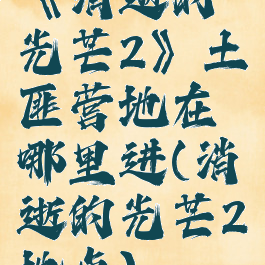 《消逝的
光芒2》土
匪营地在
哪里进(消
逝的光芒2